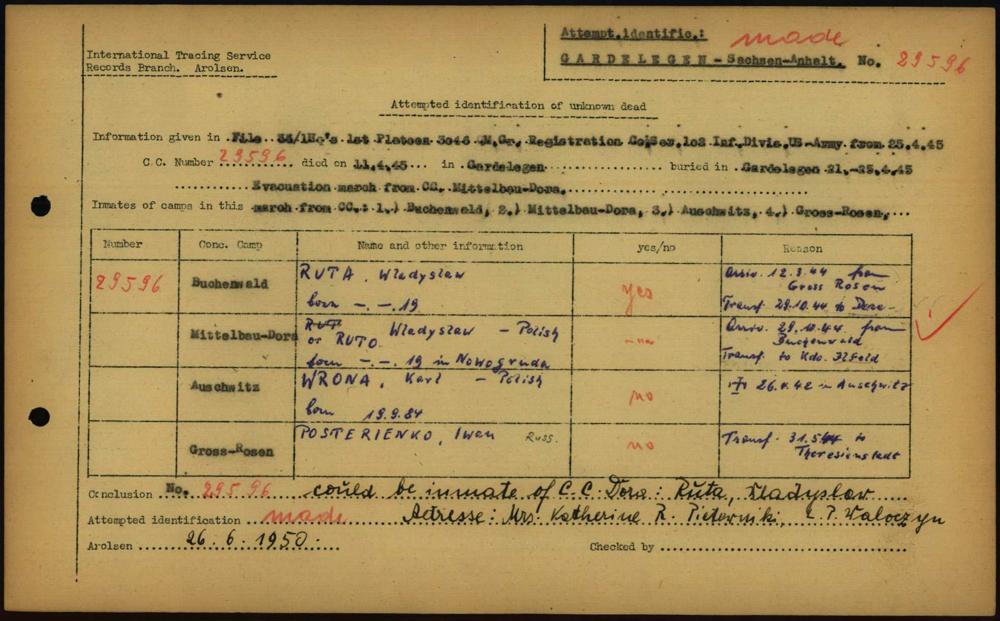 International Tracing Service
Records Branch. Arolsen.
Attempt.identific.: made
GARDELEGEN - Sachsen-Anhalt. No. 29596
Attempted identification of unknown dead
Information given in File 33/1Hq's 1st Platoon 3046 QM.Gr. Registration Co;Sex.102 Inf.Divis.US-Army from 25.4.45
C.C. Number 29596 died on 11.4.45 in Gardelegen buried in Gardelegen 21.-25.4.45
Evacuation march from CC. Mittelbau-Dora.
Inmates of camps in this march from CC.: 1.) Buchenwald, 2.) Mittelbau-Dora, 3.) Auschwitz, 4.) Gross-Rosen,
Number Conc. Camp Name and other information yes/no Reason
29596 Buchenwald RUTA, Wladyslaw yes Arriv. 12.3.44 from
Gross Rosen
born -.-.19 Transf. 29.10.44 to Dora-
Mittelbau-Dora RUT Wladyslaw - Polish Arriv. 29.10.44 from
or RUTO Buchenwald
born -.-.19 in Nowogruda Transf. to Kdo. Ilfeld
Auschwitz WRONA, Karl - Polish no 26.4.42 in Auschwitz
born 19.9.84
Gross-Rosen POSTERIENKO, Iwan Russ. no Transf. 31.5.44 to
Theresienstadt
Conclusion No. 29596 could be inmate of C.C. Dora: Ruta, Wladyslaw
Attempted identification made Adresse: Mrs. Katherine R. Pietorniki, L.P. Waloczyn
Arolsen 26.6.1950. Checked by